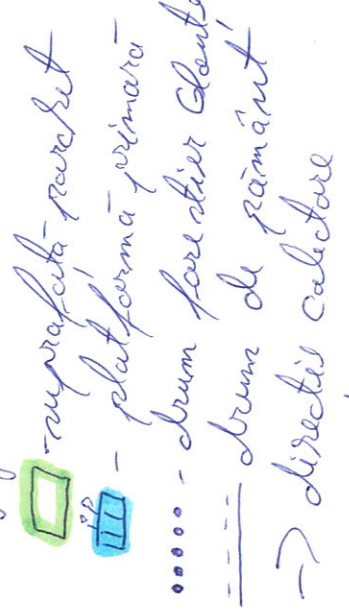 - suprafață parchet
- platformă primară
- drum forestier
- drum de pământ
-> direcții colectare